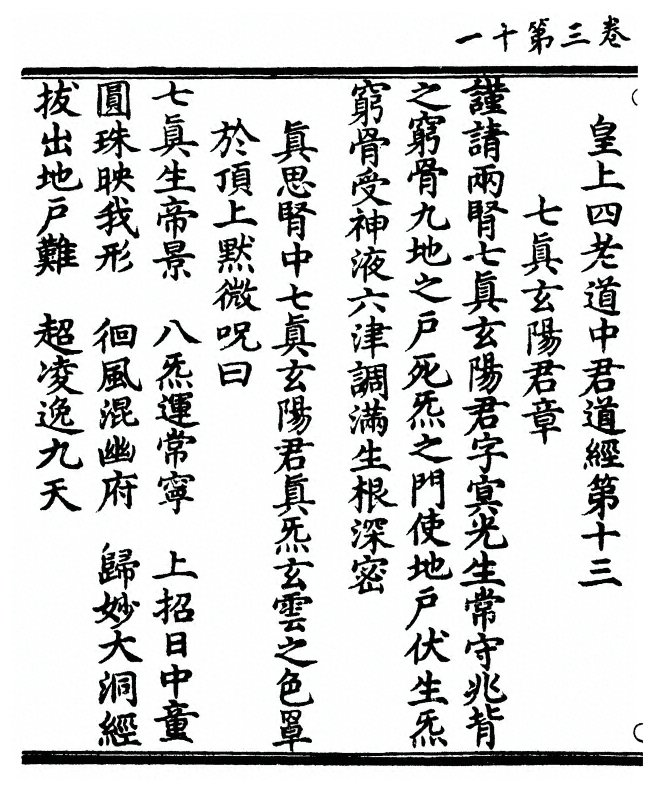 卷三第十一
皇上四老道中君道經第十三
七眞玄陽君章
謹請兩腎七眞玄陽君字寘光生常守兆背
之窮骨九地之戸死炁之門使地戸伏生炁
窮骨受神液六津調滿生根深密
眞思腎中七眞玄陽君眞炁玄雲之色罩
於頂上默微呪曰
七眞生帝景　八炁運常寧　上招日中童
圓珠映我形　徊風混幽府　歸妙大洞經
拔出地戸難　超凌逸九天